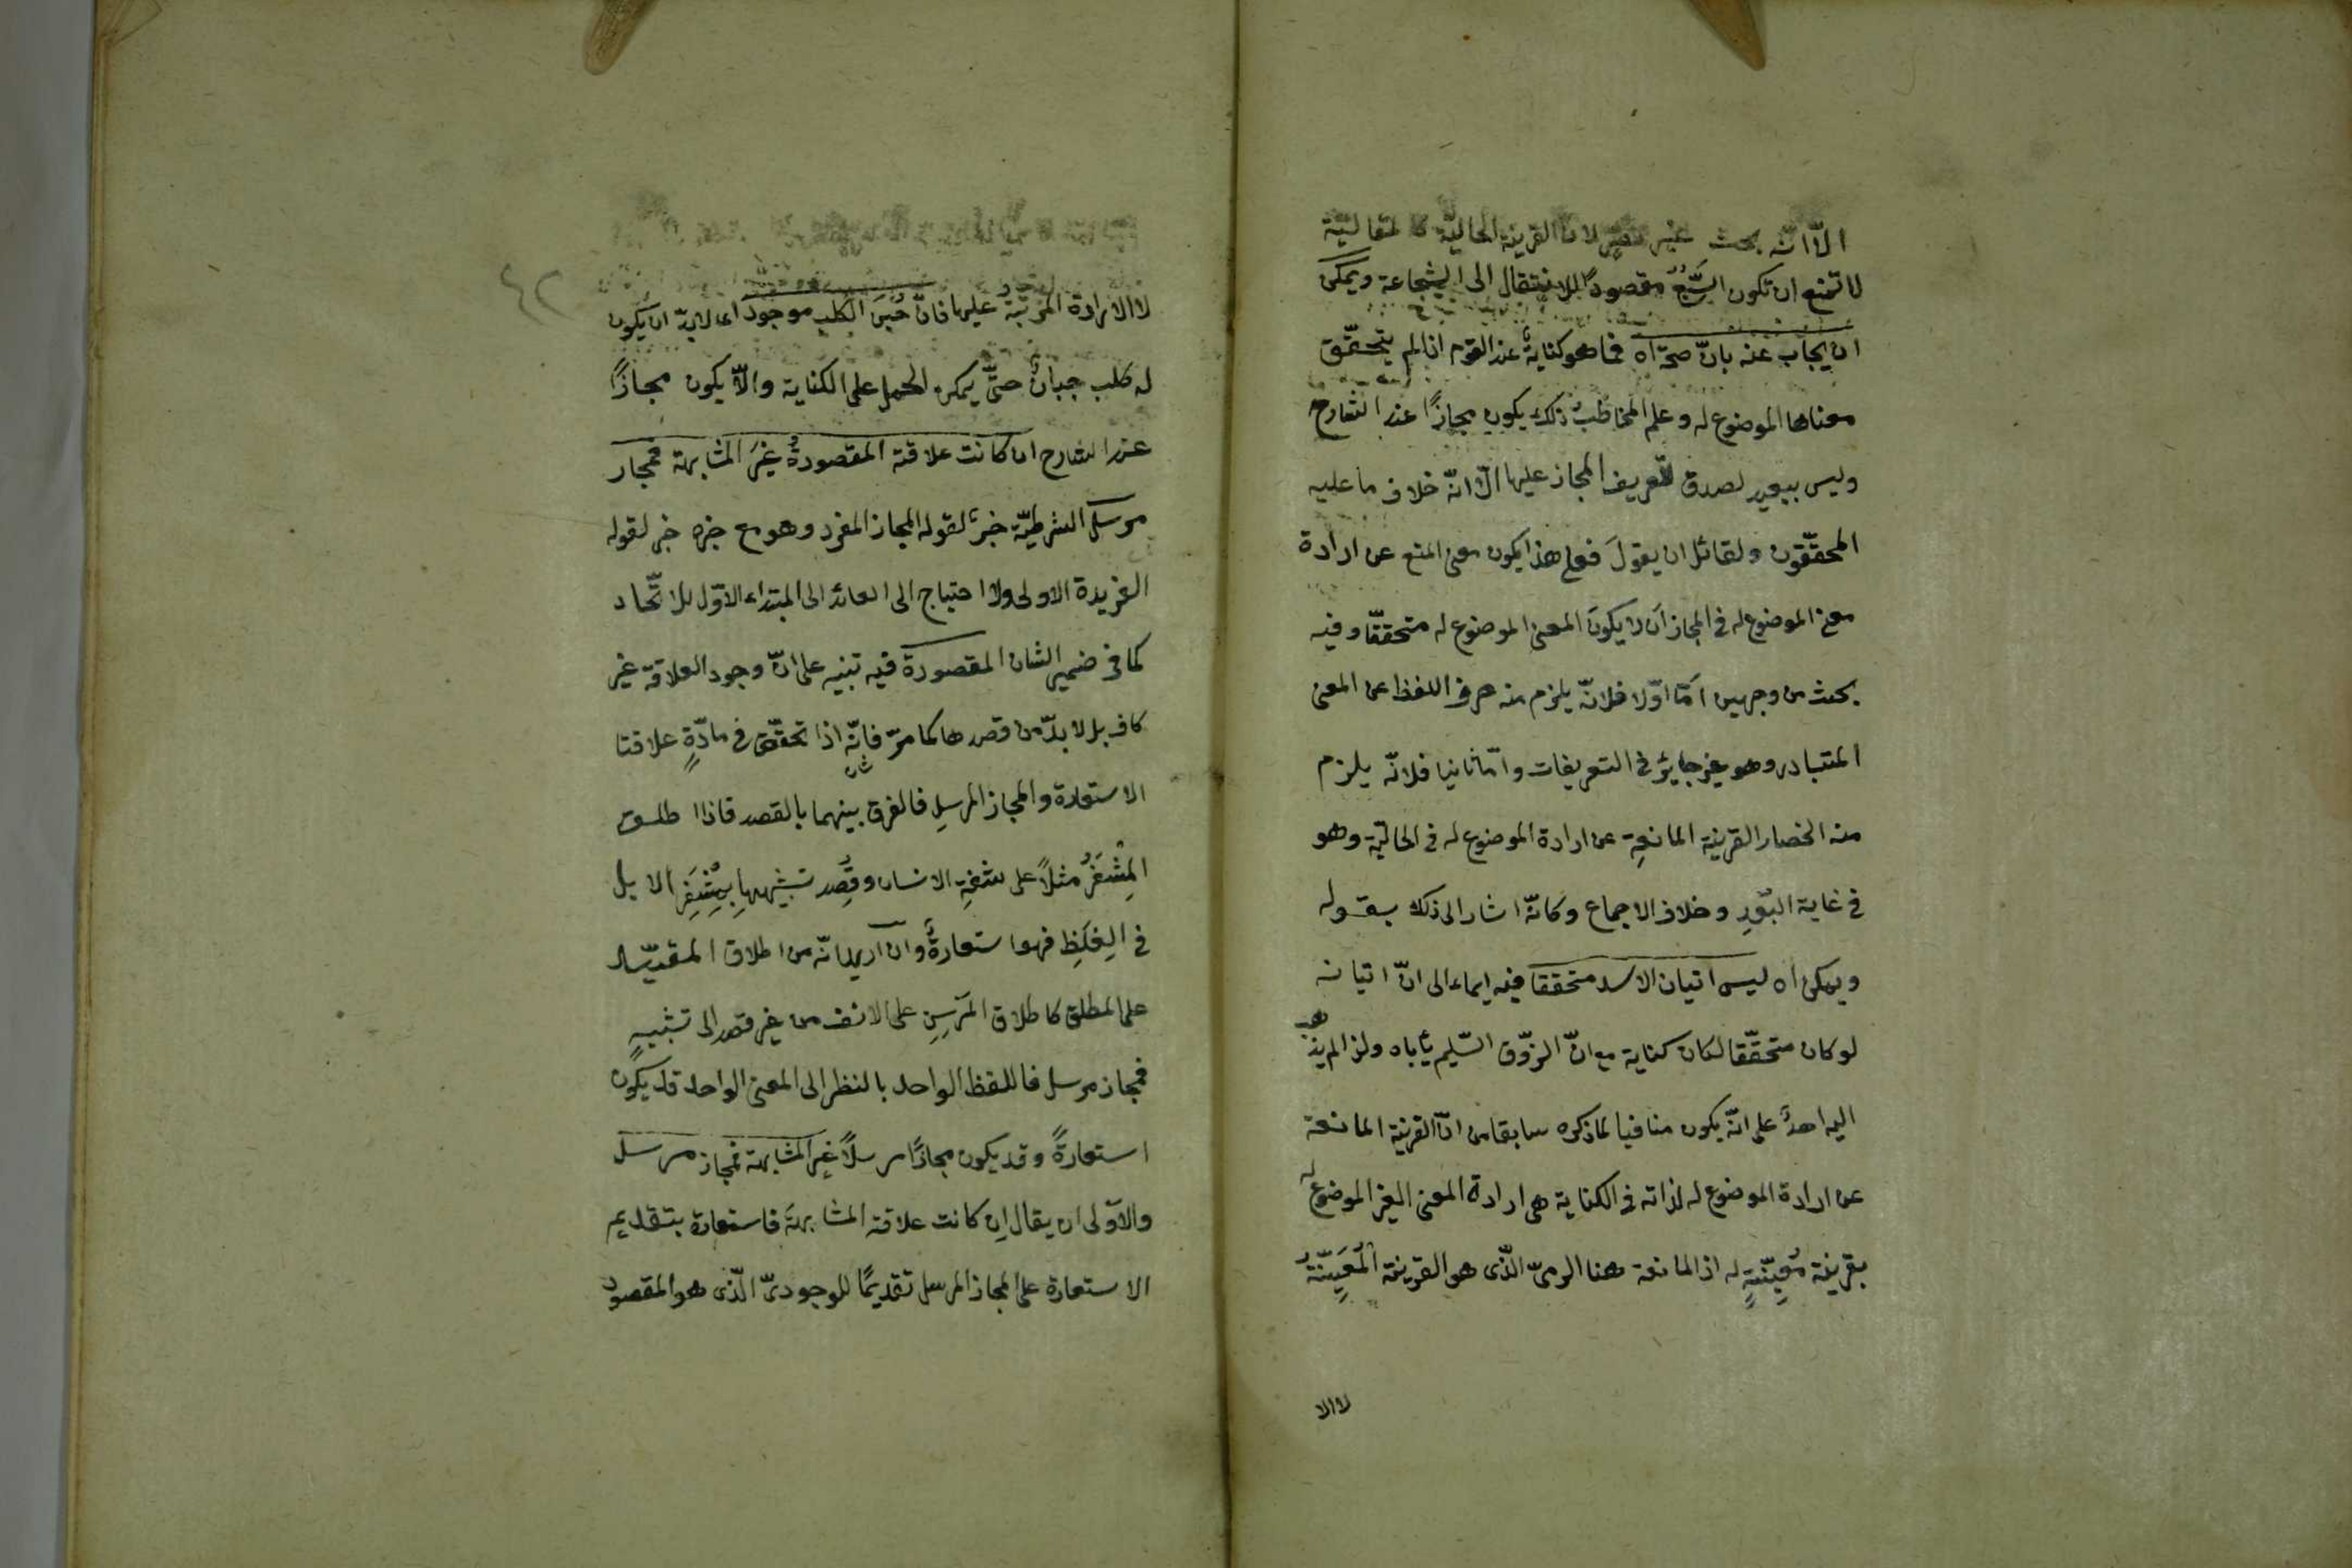 الّا انّه بحث غير لانّ القرينة الحاليّة كالمقاليّة
لا تمنع ان تكون السَّبُعُ مقصودًا للانتقال الى الشجاعة ويمكن
ان يجاب عنه بانّ صحّ اه فما هو كنايةٌ عند القوم اذا لم يتحقّق
معناها الموضوع له وعلم المخاطَبُ ذلك يكون مجازًا عند الشارح
وليس ببعيد لصدق تعريف المجاز عليها الّا انّه خلاف ما عليه
المحقّقون ولقائل ان يقولَ فعلى هذا يكون معنى المنع عن ارادة
معنى الموضوع له في المجاز اَن لا يكونَ المعنى الموضوع له متحققّا وفيه
بحث من وجهين امّا اوّلا فلانّه يلزم منه صرف اللفظ عن المعنى
المتبادر وهو غير جايز في التعريفات وامّا ثانيا فلانّه يلزم
منه انحصار القرينة المانعةِ عن ارادة الموضوع له في الحاليّة وهو
في غاية البُعْدِ وخلاف الاجماع وكانّه اشار الى ذلك بقوله
ويمكن اه ليس اتيان الاسد متحققا فيه ايماء الى انّ اتيانه
لو كان متحقّقا لكان كناية مع انّ الذّوق السّليم يأباه ولذا لم يذهب
اليه احدٌ على انّه يكون منافيا لما ذكره سابقا من انّ القرينة المانعة
عن ارادة الموضوع له لذاته في الكناية هى ارادة المعنى الغير الموضوع له
بقرينة مُعيِّنةٍ له اذ المانعة هنا الرمىُ الّذى هو القرينة المُعَيِّنَةُ
لا الا
٤٢
لا الارادة المرتّبة عليها فانّ جُبْنَ الكلب موجود اى لابدّ ان يكون
له كلب جبانٌ حتّى يمكن الحمل على الكناية والّا يكون مجازًا
عند الشارح ان كانت علاقته المقصودةُ غيرَ المشابهة فمجاز
مرسل الشرطيّة خبرٌ لقوله المجاز المفرد وهو مع خبره خبر لقوله
الفريدة الاولى ولا احتياج الى العائد الى المبتداء الاوّل للاتّحاد
كما في ضمير الشان المقصودة فيه تنبيه على انّ وجود العلاقة غير
كاف بل لا بدّ من قصدها كما مرّ فانّه اذا تحقّق في مادّةٍ علاقتا
الاستعارة والمجاز المرسلِ فالفرق بينهما بالقصد فاذا اطلق
المِشْفَرُ مثلاً على شفةِ الانسان وقُصِد تشبيهها بمِشْفَرِ الابل
في الغِلَظِ فهو استعارةٌ وان اريد انّه من اطلاق المقيّد
على المطلق كاطلاق المَرْسِنِ على الانف من غير قصد الى تشبيهٍ
فمجاز مرسل فاللفظ الواحد بالنظر الى المعنى الواحد قد يكون
استعارةً وقد يكون مجازًا مرسلاً غير المشابهة فمجاز مرسل
والاَوْلى ان يقال اِن كانت علاقته المشابهةَ فاستعارة بتقديم
الاستعارة على المجاز المرسل تقديمًا للوجودىّ الّذى هو المقصود